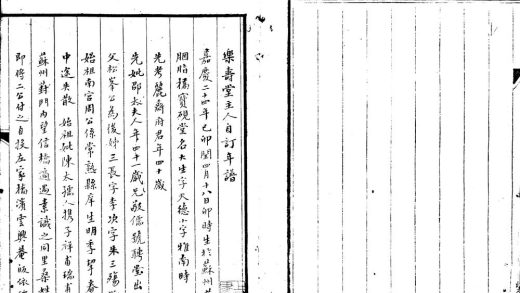 樂壽堂主人自訂年譜
嘉慶二十四年己卯閏四月十八日卯時生於蘇州
胭脂橋寶硯堂名大生字天德小字雅南時
先考麓齋府君年四十歲
先妣鄒太夫人年四十一歲兄敬儒號聽堂出
父松峯公為後姊三長字李次字朱三殤
始祖南宮周公係常熟縣庠生明季挈眷
中途失散 始祖妣陳太孺人携子祥甫瑞甫
蘇州葑門內望信橋適遇素識之同里桑姓
即將二公付之自投左家橋濱雲興菴皈依